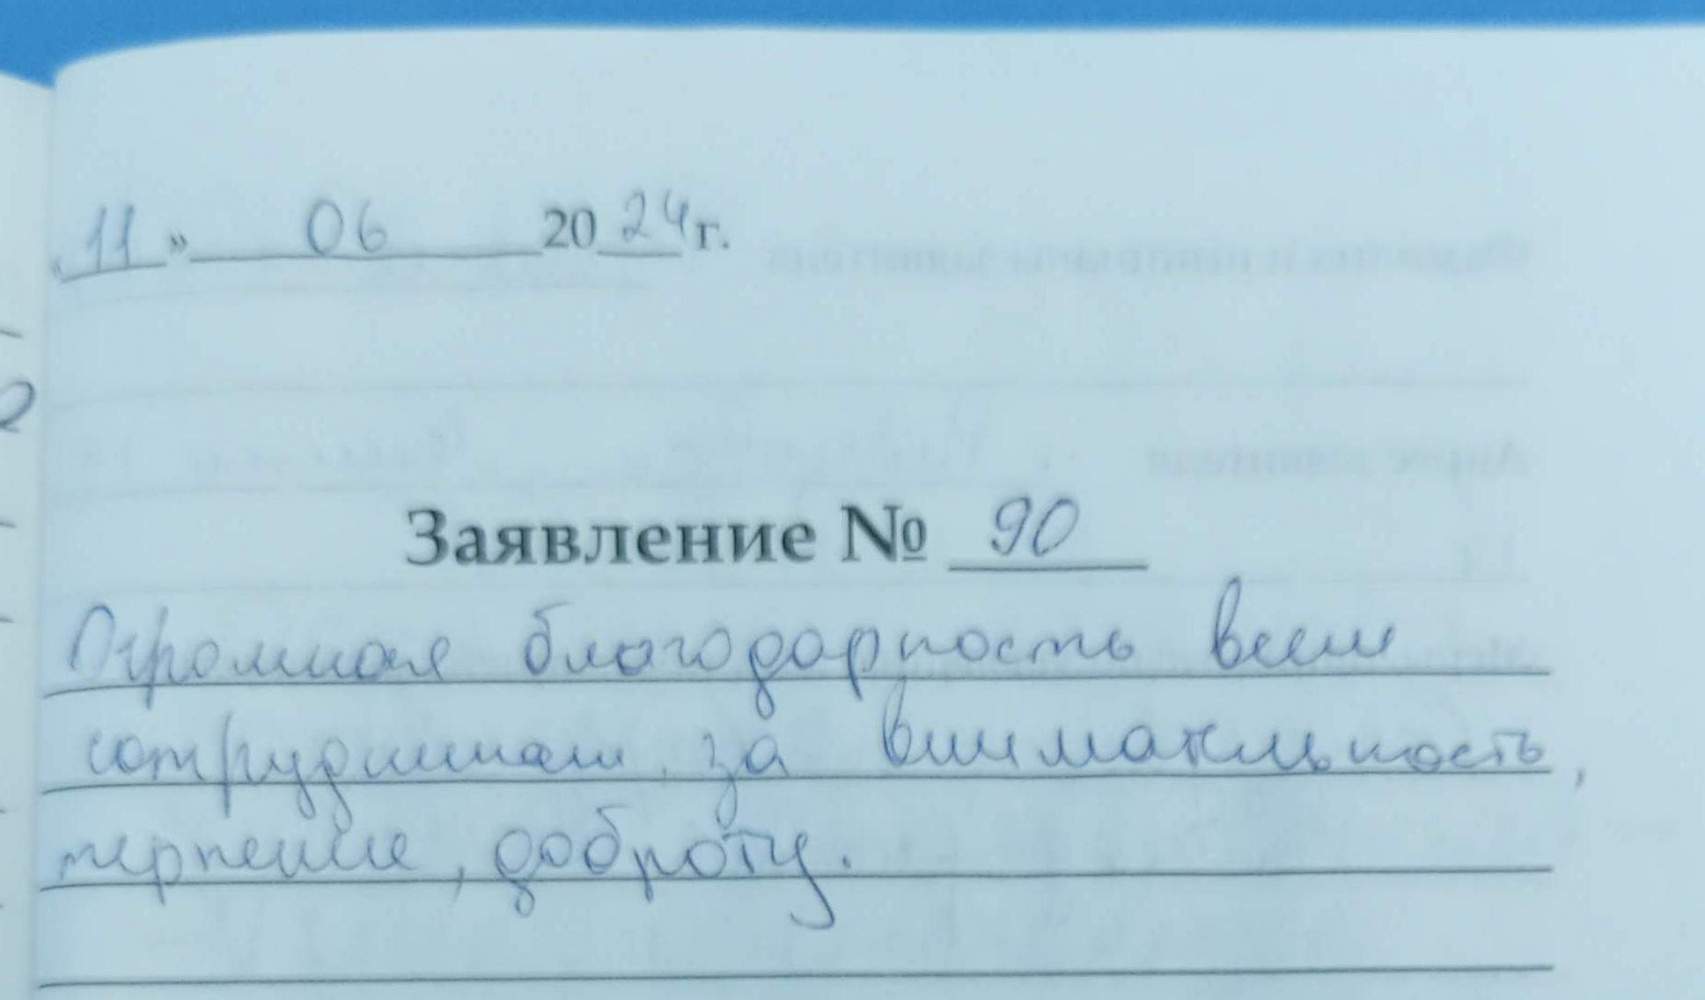 «11» 06 2024г.
Заявление № 90
Огромная благодарность всем
сотрудникам за внимательность,
терпение, доброту.